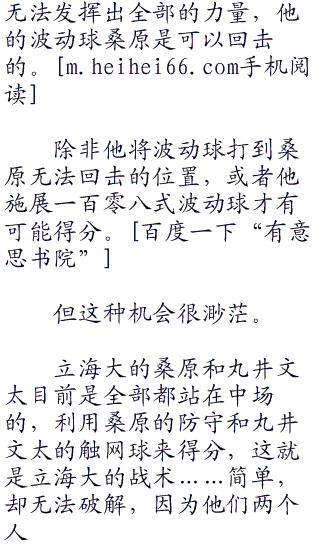 无法发挥出全部的力量，他
的波动球桑原是可以回击
的。[m.heihei66.com手机阅
读]
除非他将波动球打到桑
原无法回击的位置，或者他
施展一百零八式波动球才有
可能得分。[百度一下“有意
思书院”]
但这种机会很渺茫。
立海大的桑原和丸井文
太目前是全部都站在中场
的，利用桑原的防守和丸井
文太的触网球来得分，这就
是立海大的战术……简单，
却无法破解，因为他们两个
人